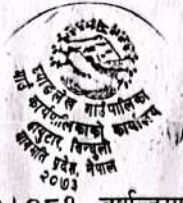 घ्याङलेख गाउँपालिका
गाउँ कार्यपालिकाको कार्यालय
हायुटार, सिन्धुली
बागमती प्रदेश, नेपाल
२०७३